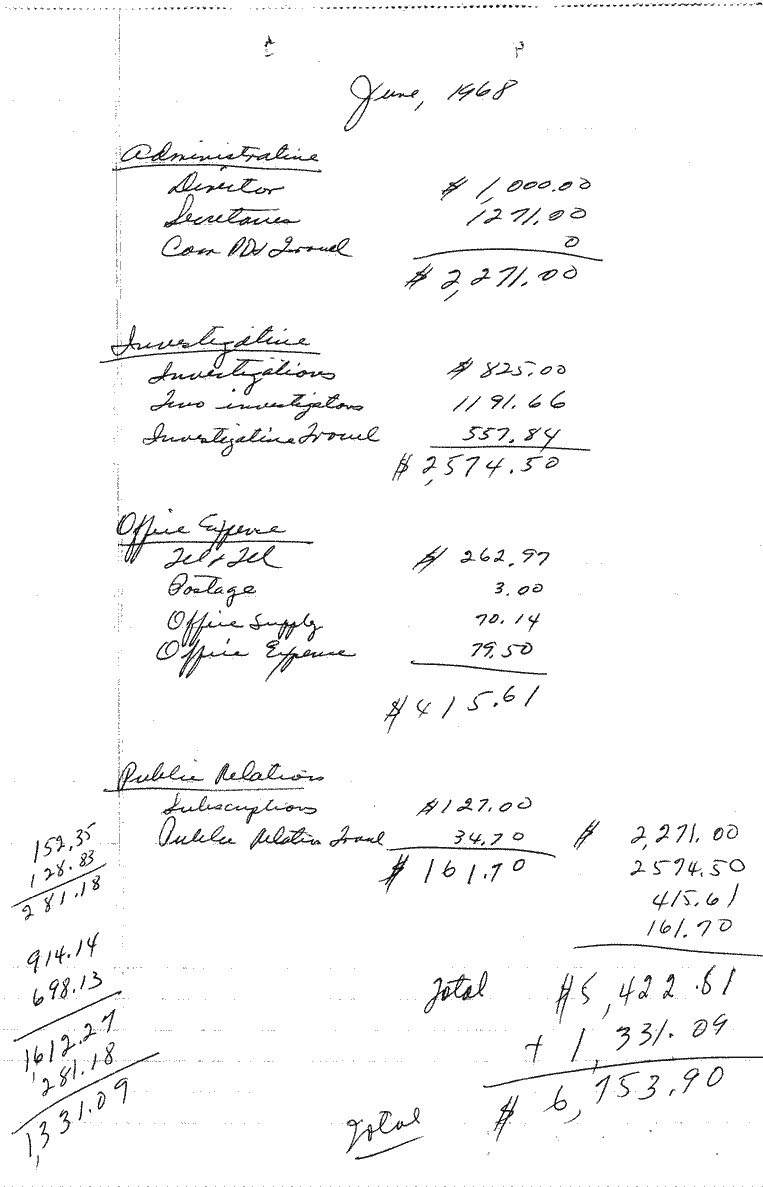 June, 1968
Administrative
Director $ 1,000.00
Secretaries 1271.00
Com Travel 0
$ 2,271.00
Investigative
Investigations $ 825.00
Two investigators 1191.66
Investigative Travel 557.84
$ 2,574.50
Office Expense
Tel & Tel $ 262.97
Postage 3.00
Office Supply 70.14
Office Expense 79.50
$ 415.61
Public Relations
Subscriptions $127.00
Public Relation Travel 34.70
$ 161.70
$ 2,271.00
2574.50
415.61
161.70
Total $5,422.81
+ 1,331.09
Total $ 6,753.90
152.35
128.83
281.18
914.14
698.13
1,612.27
281.18
1,331.09